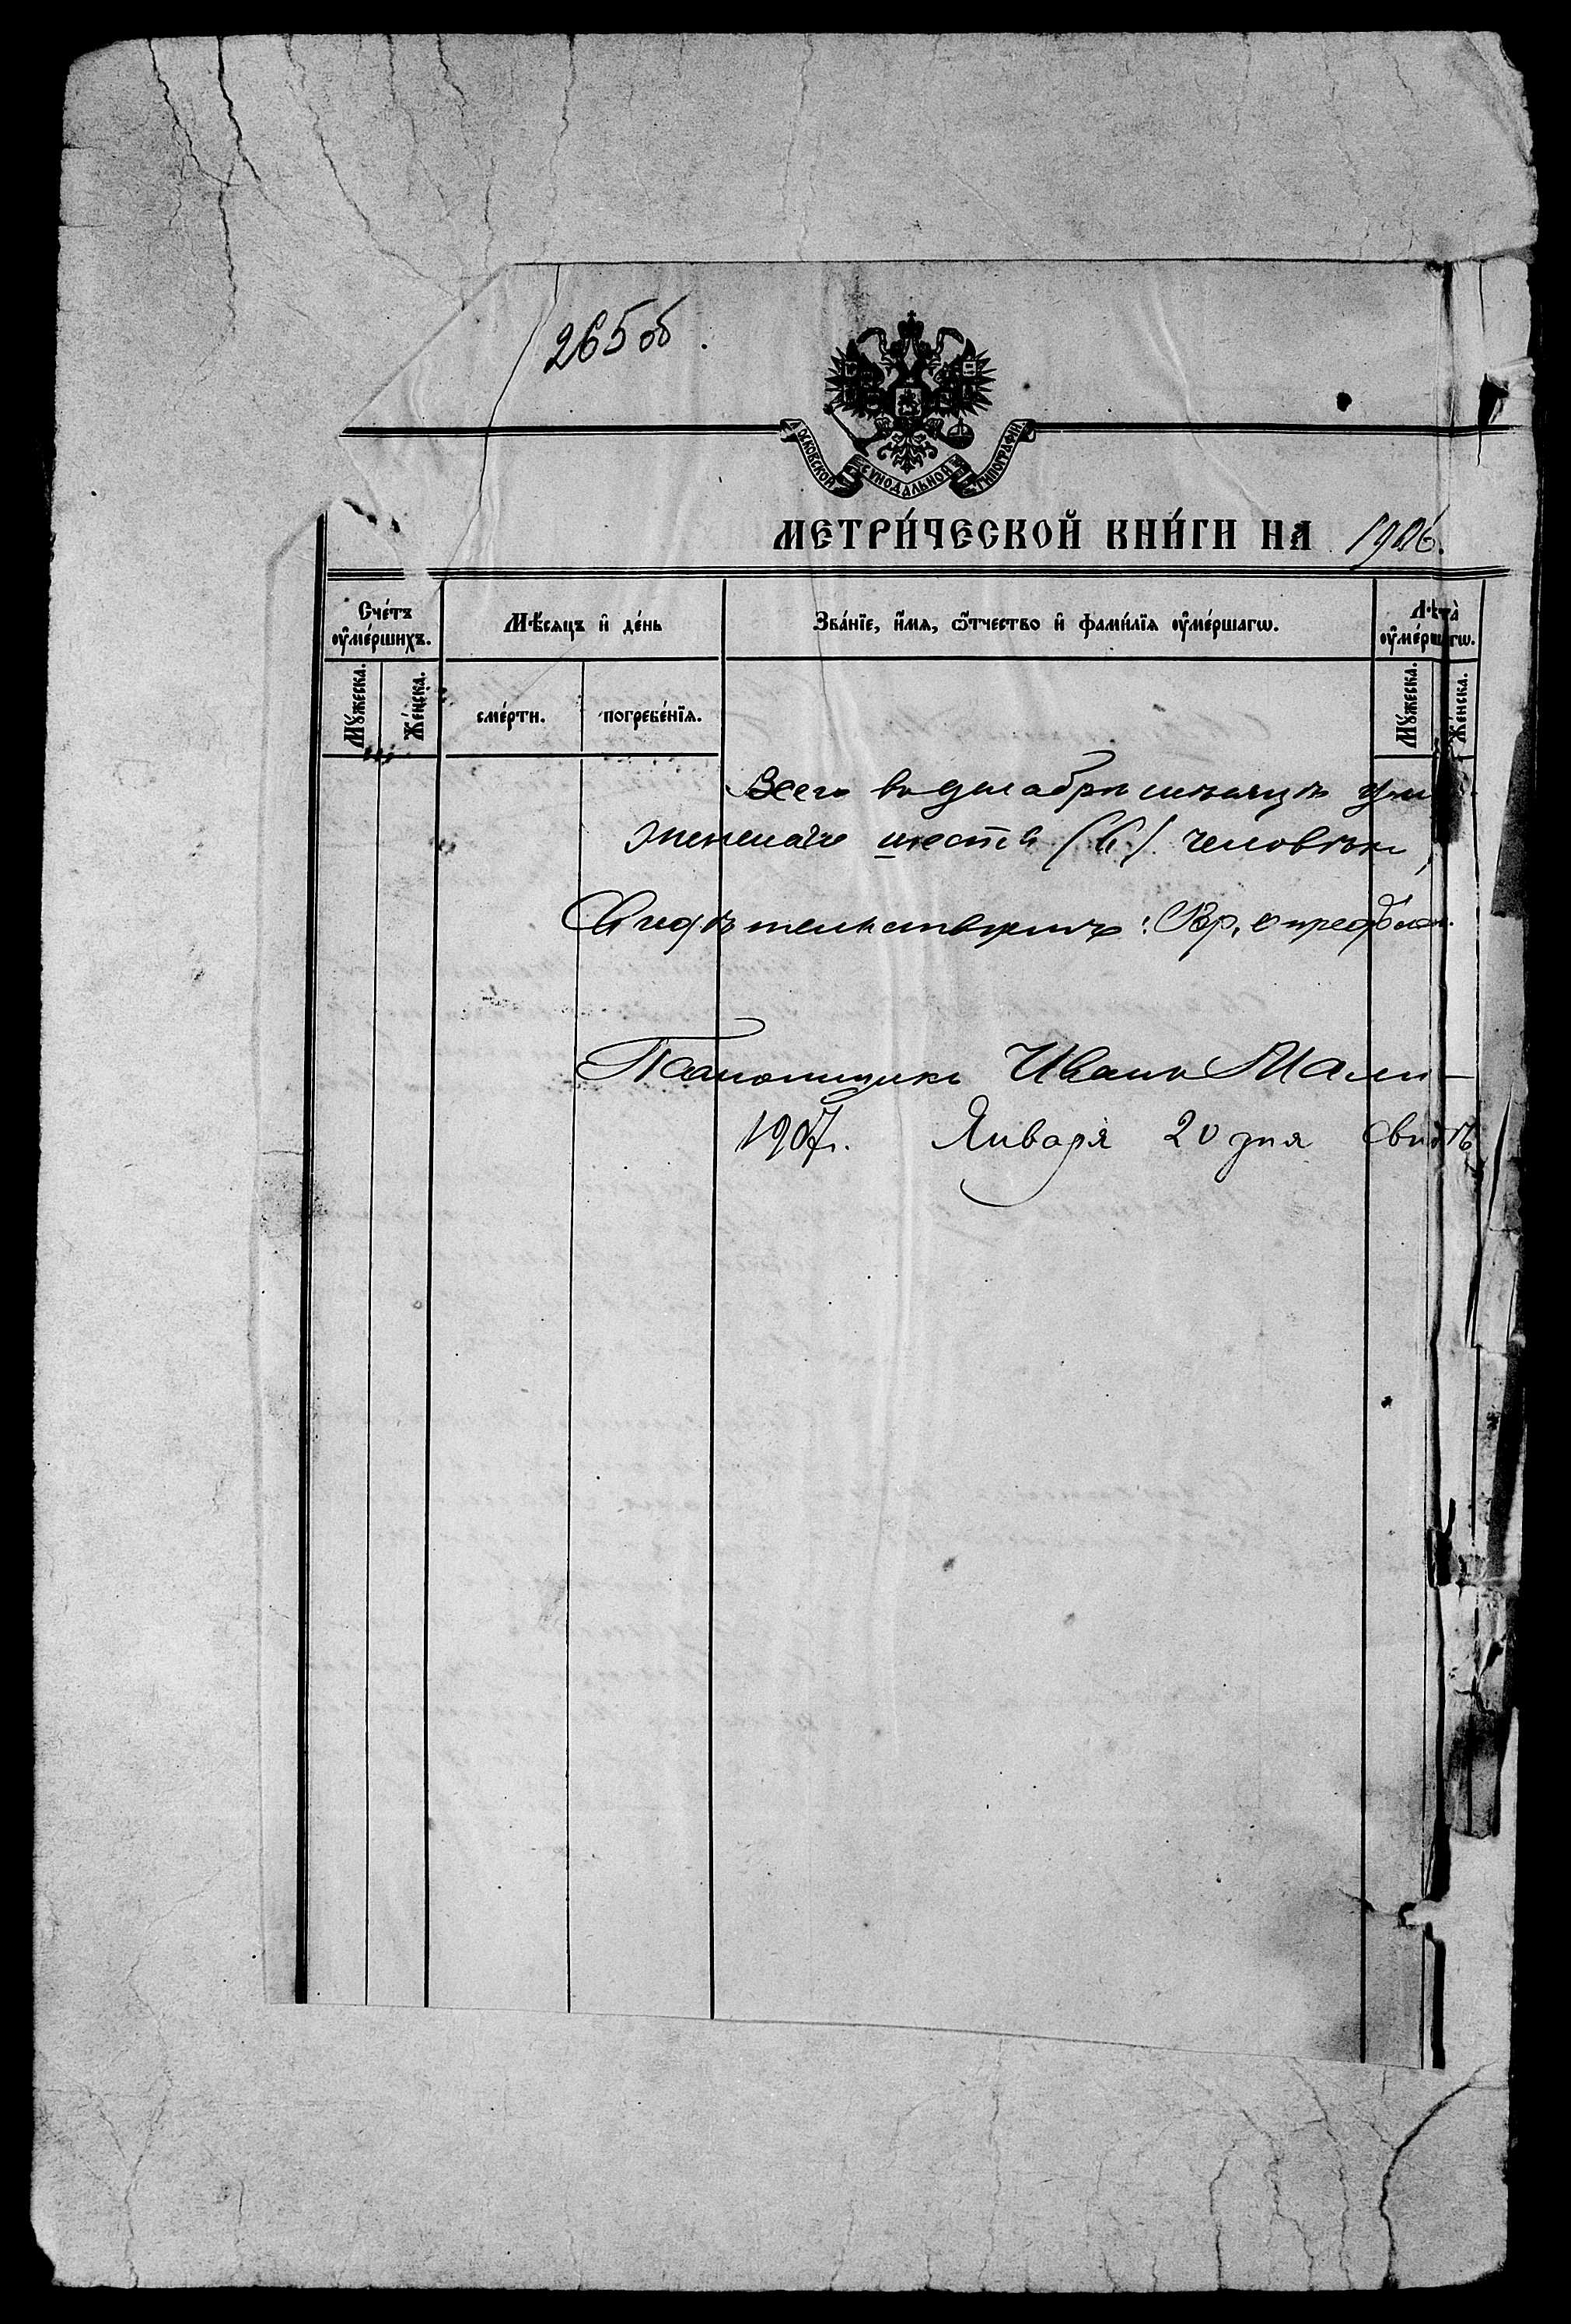 265 об.
Московской Сѵнодальной Типографіи
МЕТРИ́ЧЕСКОЙ КНИ́ГИ НА 1906.
Сче́тъ ᲂу҆ме́ршихъ.
Мѣ́сяцъ и҆ де́нь
Зва́нїе, и҆́мѧ, ѻ҆́тчество и҆ фами́лїѧ ᲂу҆ме́ршагѡ.
Лѣта̀ ᲂу҆ме́ршагѡ.
Мꙋжеска.
Же́нска.
сме́рти.
погребе́нїѧ.
Мꙋжеска.
Же́нска.
Всего въ декабрѣ мѣсяцѣ
женска шесть (6) человѣкъ,
Свидѣтельствуютъ:
Псаломщикъ Иванъ
1907. Января 20 дня свидѣ